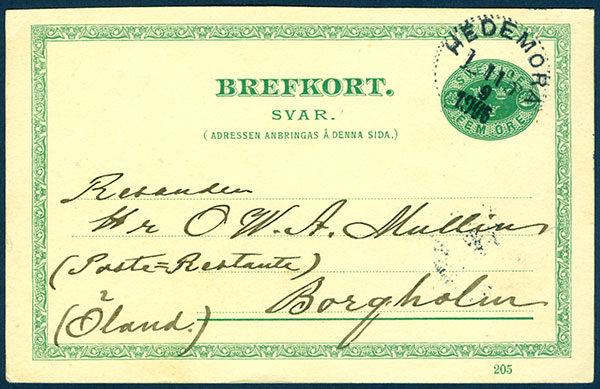 BREFKORT.
SVAR.
(ADRESSEN ANBRINGAS Å DENNA SIDA.)
HEDEMORA
FEM ÖRE
Resanden
Hr O. W. A. Mullins
(Poste=Restante)
Borgholm
(Öland.)
205